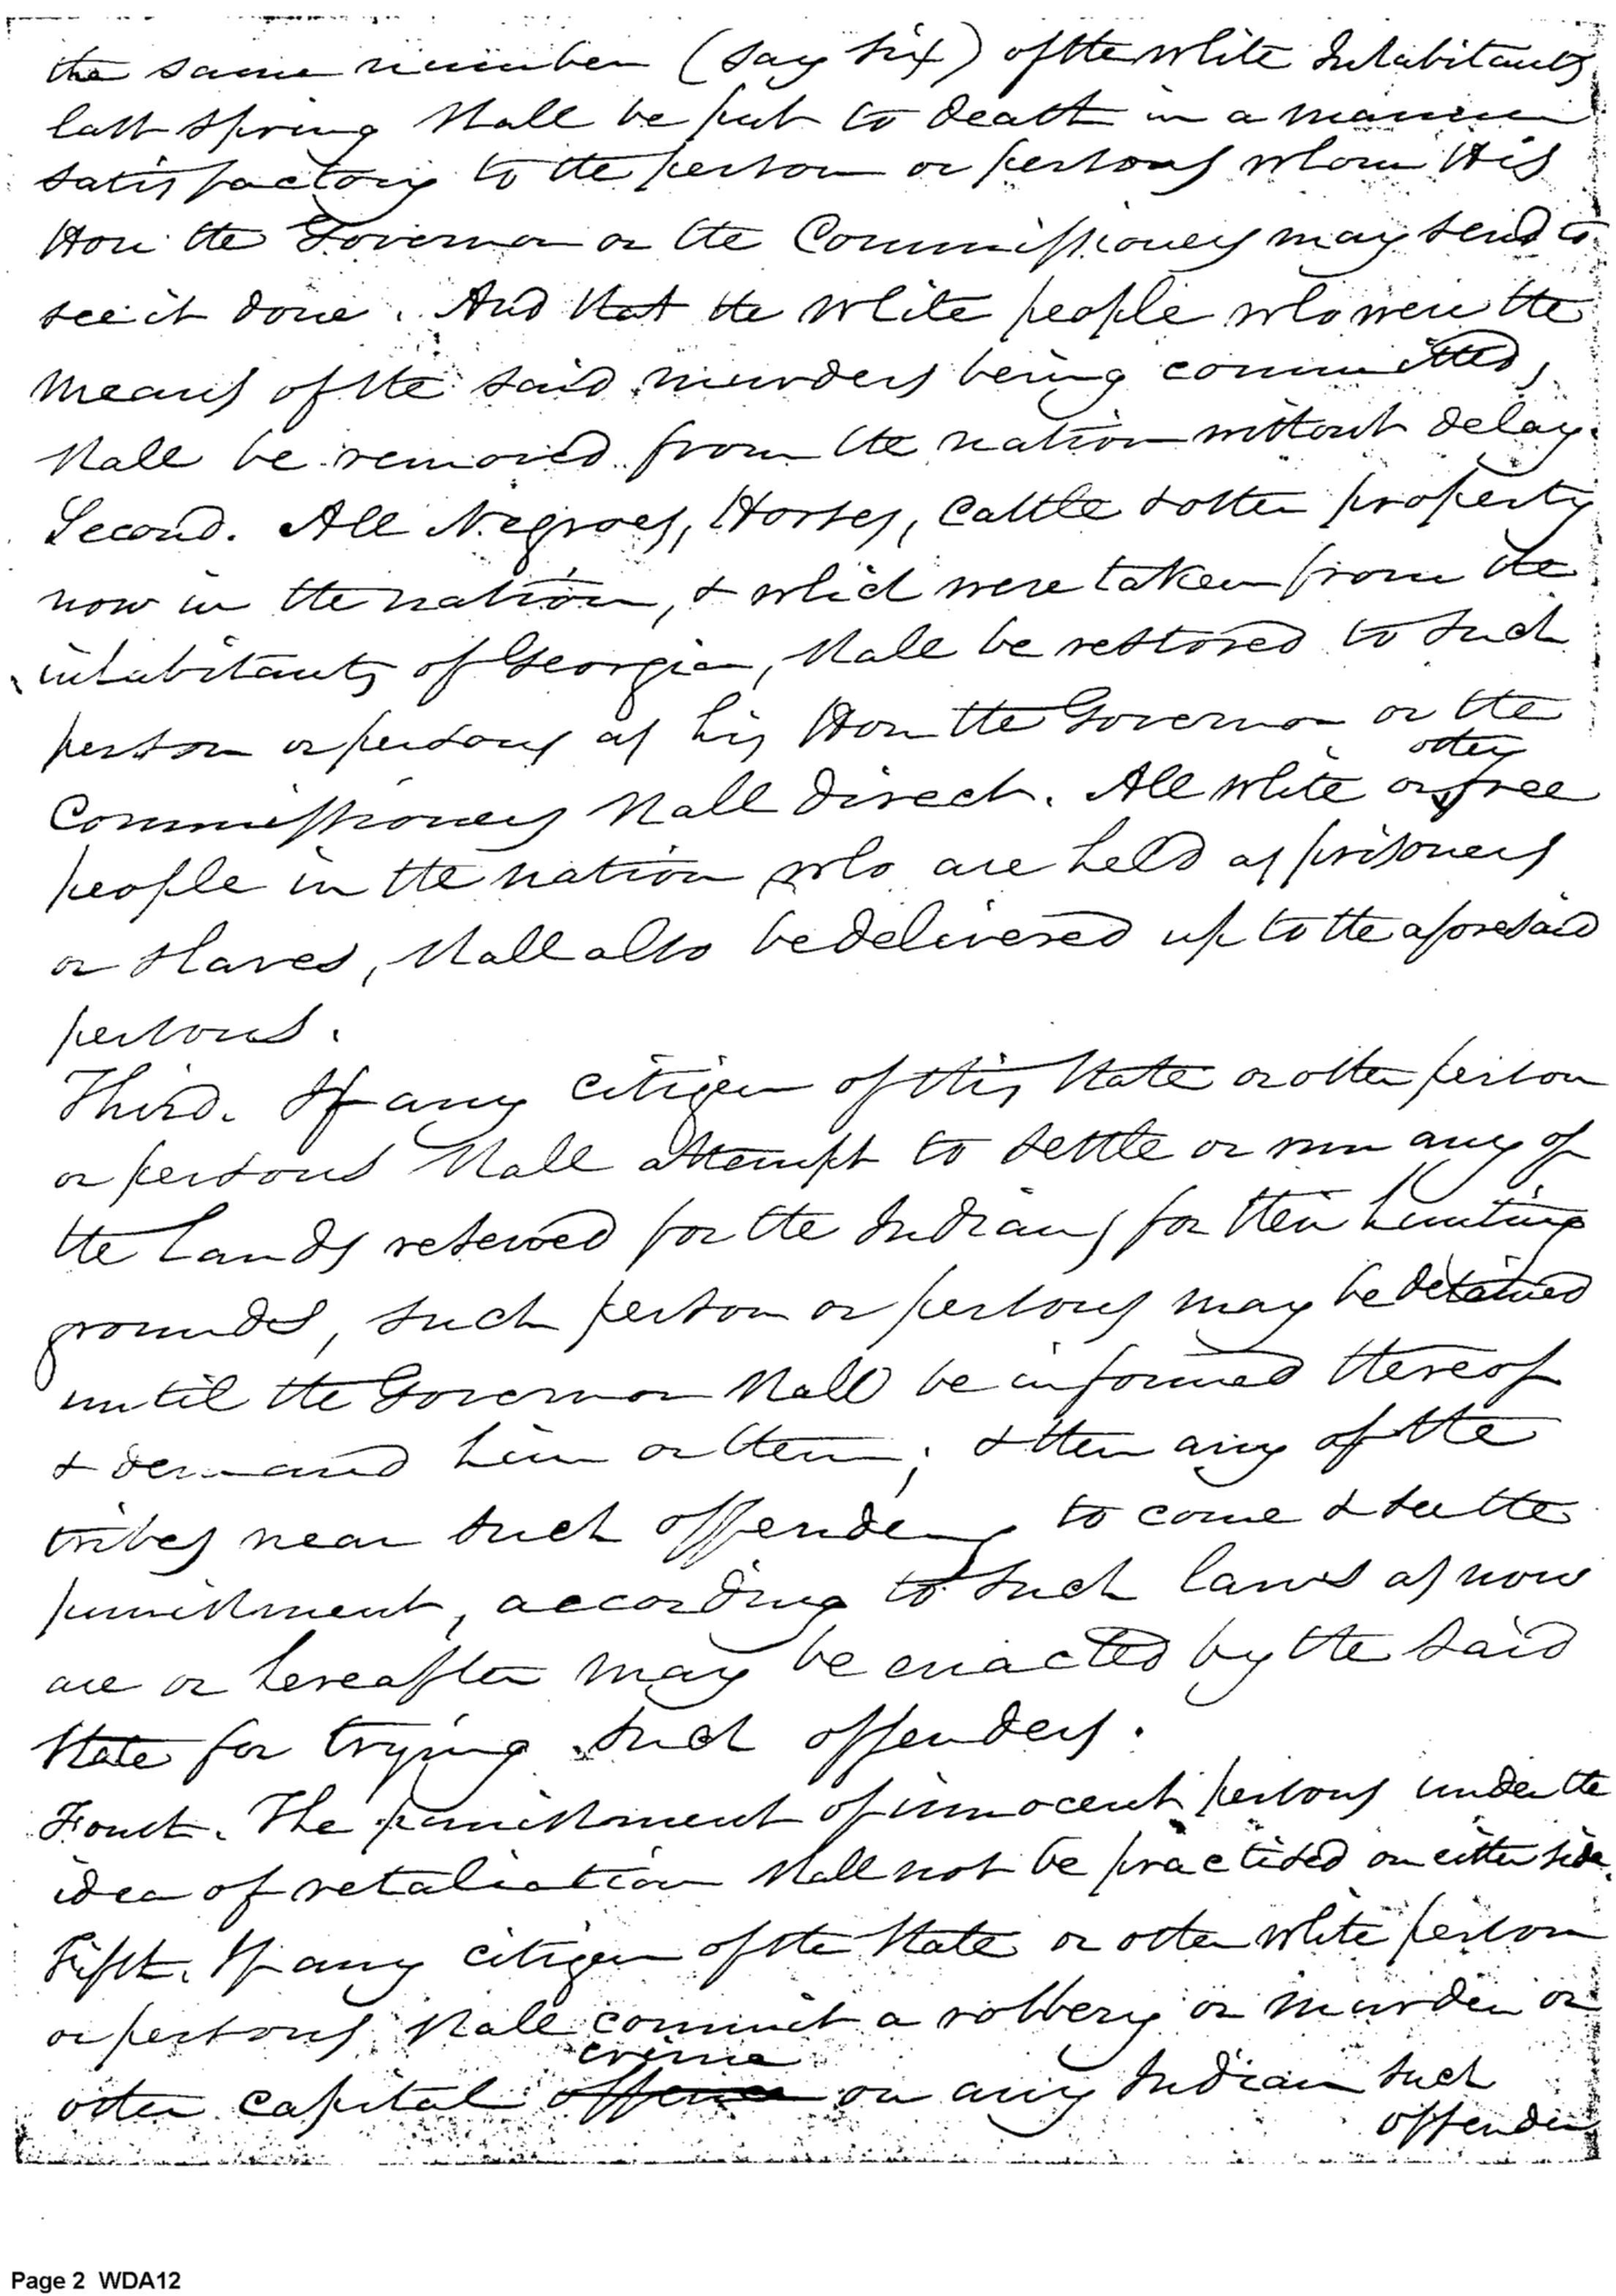 the same number (say six) of the white Inhabitants
last spring shall be put to death in a manner
satisfactory to the person or persons whom His
Hon: the Governor or the Commissioners may send to
see it done. And that the white people who were the
means of the said murders being committed,
shall be removed from the nation without delay.
Second. All Negroes, Horses, Cattle & other property
now in the nation, & which were taken from the
inhabitants of Georgia, shall be restored to such
person or persons as his Hon the Governor or the
Commissioners shall direct. All white or other free
people in the nation who are held as prisoners
or slaves, shall also be delivered up to the aforesaid
persons.
Third. If any citizen of this State or other person
or persons shall attempt to settle or run any of
the Lands reserved for the Indians for their hunting
grounds, such person or persons may be detained
until the Governor shall be informed thereof
& demand him or them; & then any of the
tribes near such offenders to come & see the
punishment, according to such laws as now
are or hereafter may be enacted by the said
State for trying such offenders.
Fourth. The punishment of innocent persons under the
idea of retaliation shall not be practised on either side.
Fifth. If any citizen of the State or other white person
or persons, shall commit a robbery or murder or
other capital offence crime on any Indian such
offender
Page 2 WDA12